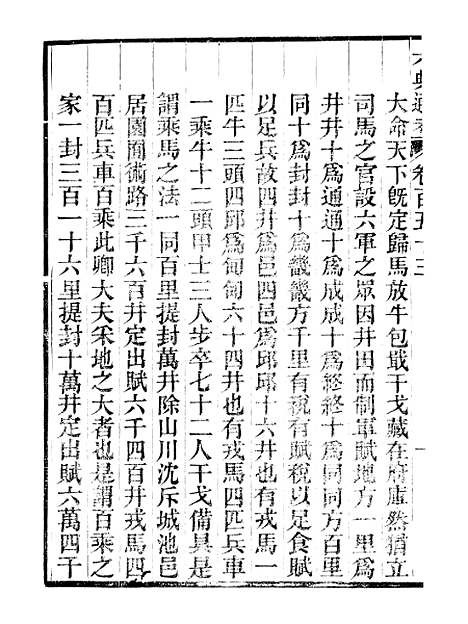 大命天下既定歸馬放牛包戢干戈藏在府庫然猶立
司馬之官設六軍之眾因井田而制軍賦地方一里爲
井井十爲通通十爲成成十爲終終十爲同同方百里
同十爲封封十爲畿畿方千里有稅有賦稅以足食賦
以足兵故四井爲邑四邑爲邱邱十六井也有戎馬一
匹牛三頭四邱爲甸甸六十四井也有戎馬四匹兵車
一乘牛十二頭甲士三人步卒七十二人干戈備具是
謂乘馬之法一同百里提封萬井除山川沈斥城池邑
居園囿術路三千六百井定出賦六千四百井戎馬四
百匹兵車百乘此卿大夫采地之大者也是謂百乘之
家一封三百一十六里提封十萬井定出賦六萬四千